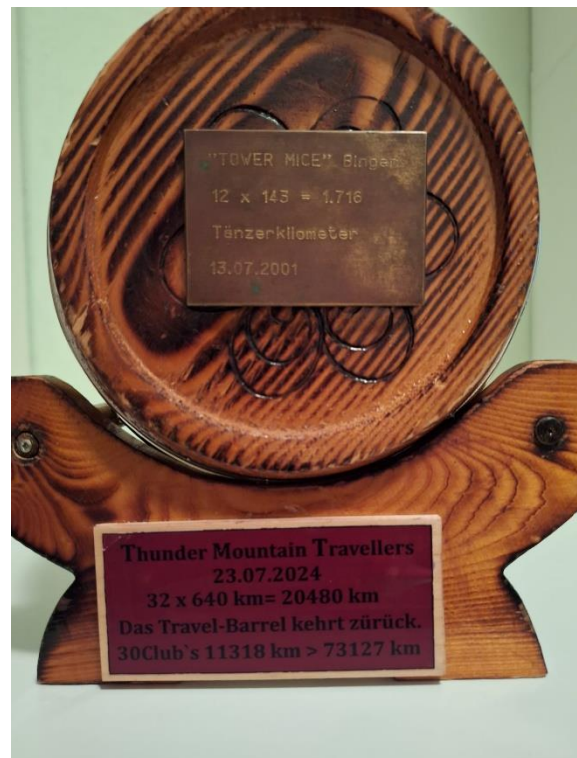 "TOWER MICE" Bingen
12 x 143 = 1.716
Tänzerkilometer
13.07.2001
Thunder Mountain Travellers
23.07.2024
32 x 640 km= 20480 km
Das Travel-Barrel kehrt zürück.
30Club`s 11318 km > 73127 km